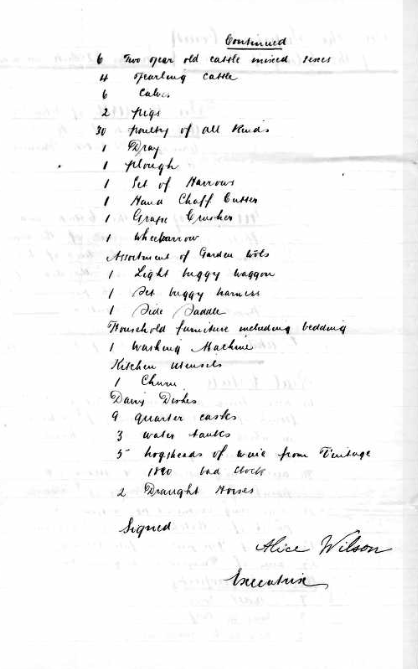 Continued
6 Two year old cattle mixed sexes
4 yearling cattle
6 Calves
2 pigs
30 poultry of all kinds
1 Dray
1 plough
1 Set of Harrows
1 Hand Chaff Cutter
1 Grape Crusher
1 Wheelbarrow
Assortment of Garden tools
1 Light buggy waggon
1 Set buggy harness
1 Side Saddle
Household furniture including bedding
1 Washing Machine
Kitchen utensils
1 Churn
Dairy Dishes
9 quarter casks
3 water tanks
5 hogsheads of wine from Vintage
1890 bad
2 Draught Horses
Signed
Alice Wilson
Executrix